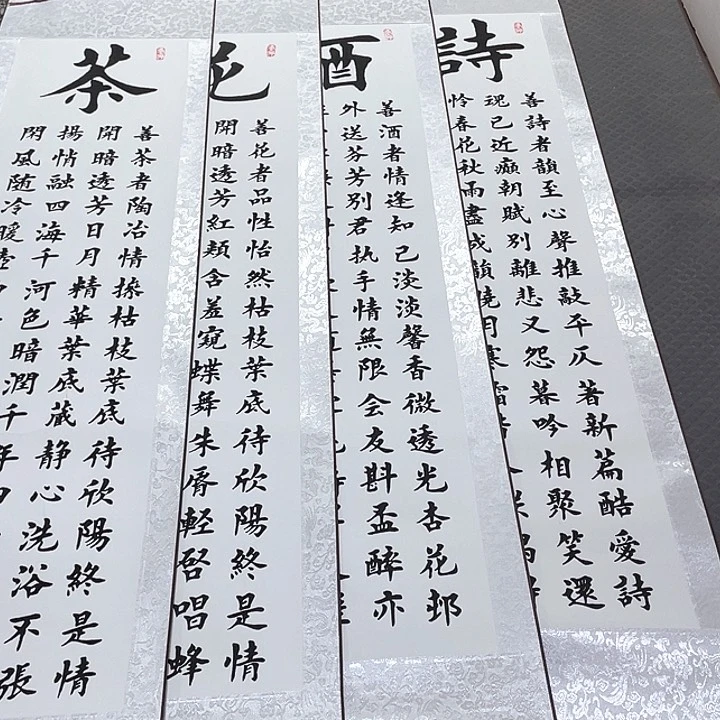 詩
善詩者韻至心聲推敲平仄著新篇酷愛詩
瑰已近癲朝賦別離悲又怨暮吟相聚笑還
怜春花秋雨盡成韻曉月寒
酒
善酒者情逢知己淡淡馨香微透光杏花邨
外送芬芳別君执手情無限会友斟盃醉亦
花
善花者品性怡然枯枝葉底待欣陽終是情
開暗透芳紅頰含羞窺蝶舞朱唇輕啓唱蜂
茶
善茶者陶冶情操枯枝葉底待欣陽終是情
開暗透芳日月精華葉底蔵静心洗浴不張
揚情融四海千河色暗潤千年
閑風随冷暖